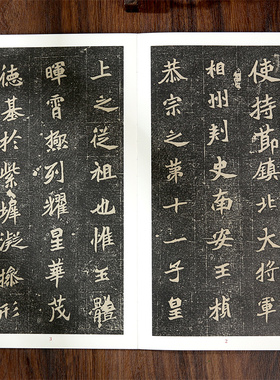 使持節鎮北大將軍
相州刾史南安王楨
恭宗之第十一子皇
上之從祖也惟王體
暉霄極列耀星華茂
德基於紫墀凝操形
2